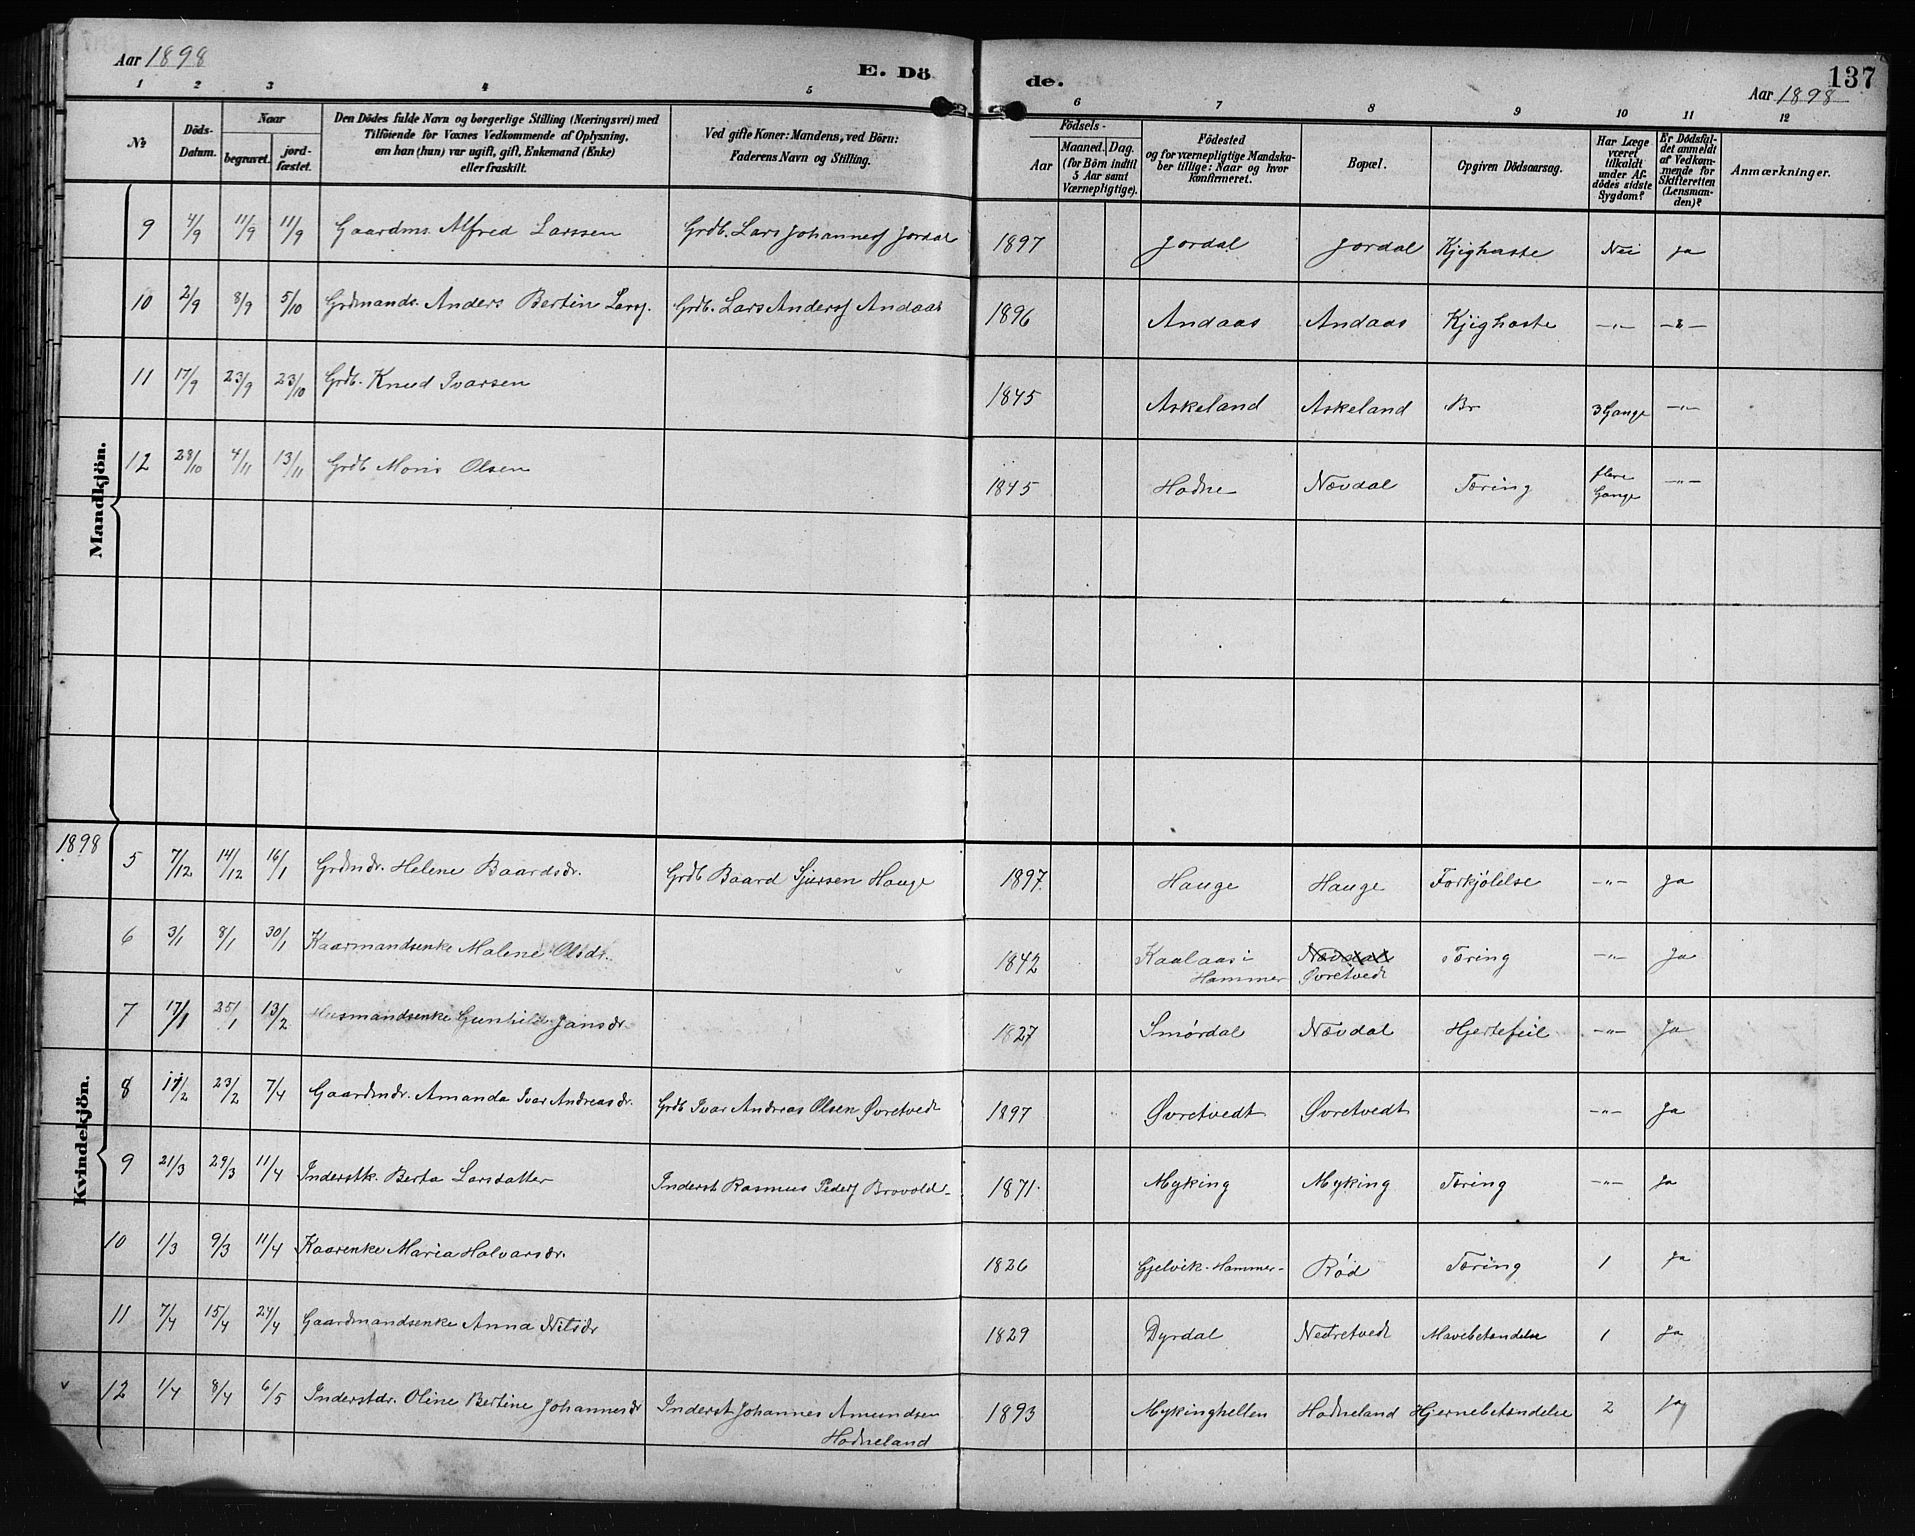 Aar 1898
E. Dö
de.
137
Aar 1898
1 2 3 4 5 6 7 8 9 10 11 12
№
Döds-Datum.
Naar
begravet.
jord-fæstet.
Den Dödes fulde Navn og borgerlige Stilling (Næringsvei) med
Tilföiende for Voxnes Vedkommende af Oplysning,
om han (hun) var ugift, gift, Enkemand (Enke)
eller fraskilt.
Ved gifte Koner: Mandens, ved Börn:
Faderens Navn og Stilling.
Födsels-
Aar
Maaned. Dag.
(for Börn indtil
5 Aar samt
Værnepligtige).
Födested
og for værnepligtige Mandska-
ber tillige: Naar og hvor
konfirmeret.
Bopæl.
Opgiven Dödsaarsag.
Har Læge
været
tilkaldt
under Af-
dödes sidste
Sygdom?
Er Dödsfal-
det anmeldt
af Vedkom-
mende for
Skifteretten
(Lensman-
den)?
Anmærkninger.
Mandkjön.
9 4/9 11/9 11/9 Gaardms. Alfred Larssen Grdb. Lars Johannesf Jordal 1897 Jordal Jordal Kjighoste Nei Ja
10 2/9 8/9 5/10 Grdmands. Anders Bertin Larsf. Grdb. Lars Andersf Andaas 1896 Andaas Andaas Kjighoste -"- -"-
11 17/9 23/9 23/10 Grdb. Knud Ivarsen 1845 Askeland Askeland Br 3 Gange -"-
12 28/10 4/11 13/11 Grdb Mons Olsen 1845 Hodne Nævdal Tæring flere Gange -"-
1898
Kvindekjön.
5 7/12 14/12 16/1 Grdmdr. Helene Baardsdr. Grdb Baard Sjursen Hauge 1897 Hauge Hauge Forkjølelse -"- Ja
6 3/1 8/1 30/1 Kaarmandsenke Malene Olsdr. 1842 Kaalaas i Hammer Nævdal Øvretvedt Tæring -"- Ja
7 17/1 25/1 13/2 Husmandsenke Gunhild Jansdr. 1827 Smørdal Nævdal Hjertefeil -"- Ja
8 17/2 23/2 7/4 Gaardmdr. Amanda Ivar Andreasdr. Grdb Ivar Andreas Olsen Øvretvedt 1897 Øvretvedt Øvretvedt -"- Ja
9 21/3 29/3 11/4 Inderstk. Berta Larsdatter Inderst Rasmus Pedersf Brovold 1871 Myking Myking Tæring -"- Ja
10 1/3 9/3 11/4 Kaarenke Maria Halvarsdr. 1826 Gjelvik-Hammer- Rød Tæring 1 Ja
11 7/4 15/4 24/4 Gaardmandsenke Anna Nilsdr 1829 Dyrdal Nedretvedt Mavebetændelse 1 Ja
12 1/4 8/4 6/5 Inderstdr. Oline Bertine Johannesdr Inderst Johannes Amundsen Hodneland 1893 Mykinghelten Hodneland Hjernebetændelse 2 Ja